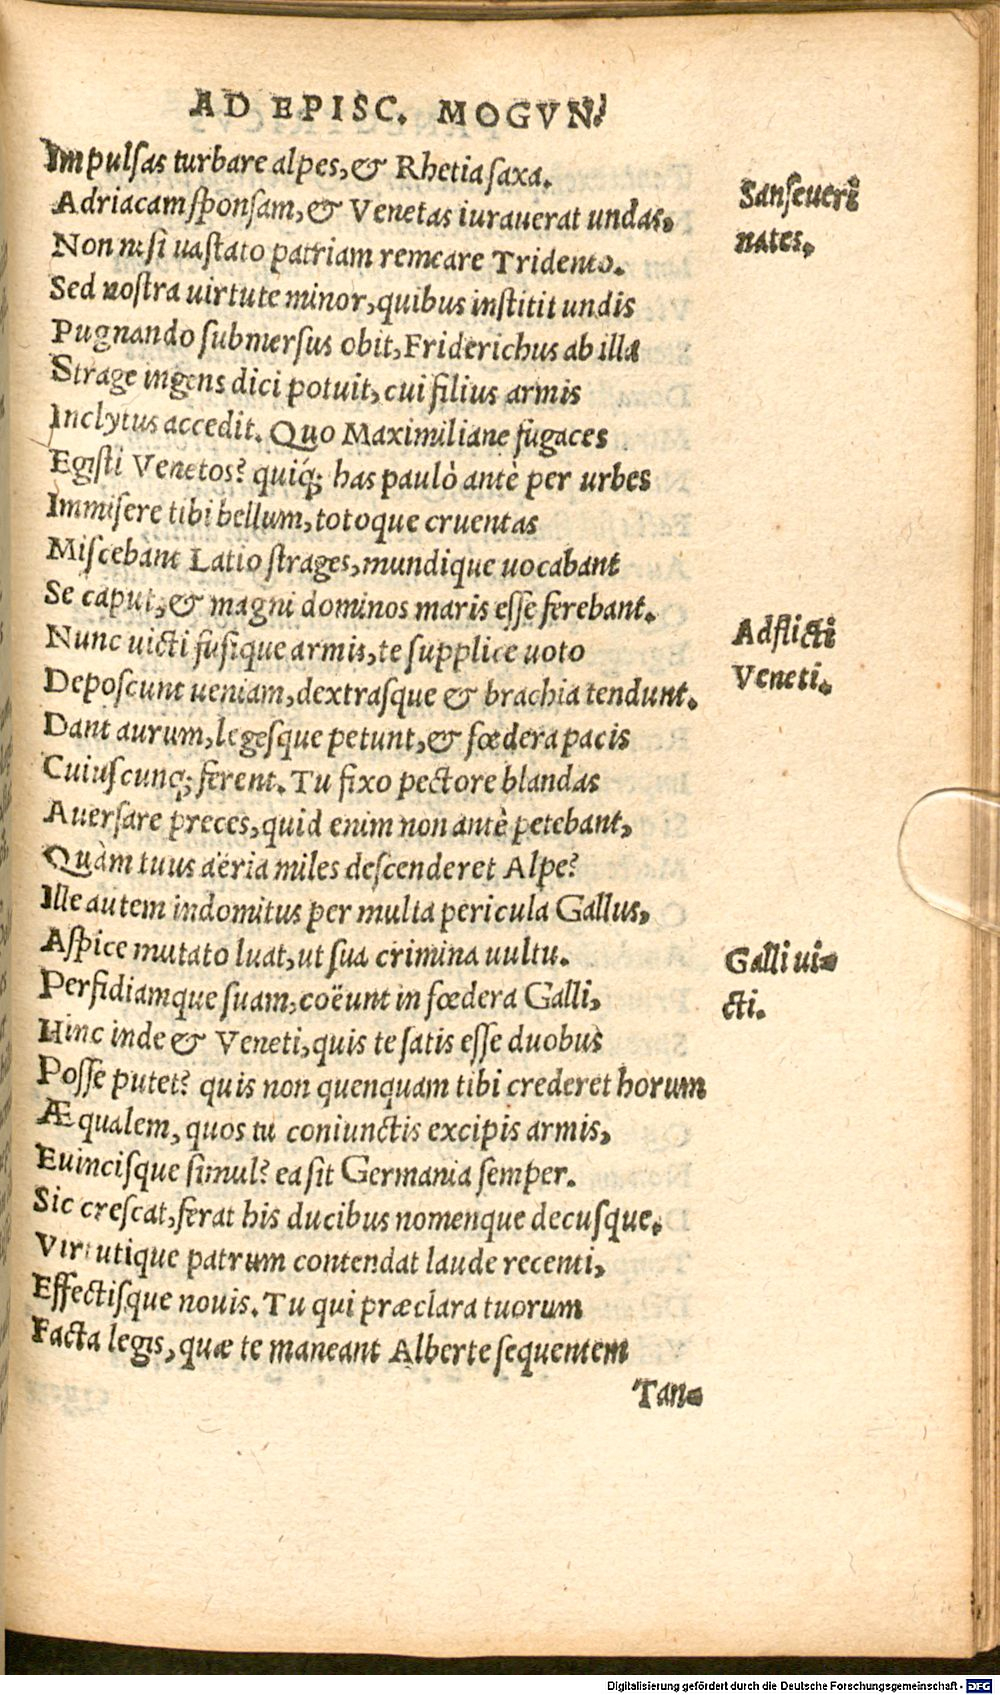 AD EPISC. MOGVN.
Impulsas turbare alpes, & Rhetia saxa.
Adriacam sponsam, & Venetas iurauerat undas,
Sanseueri
nates.
Non nisi uastato patriam remeare Tridento.
Sed nostra uirtute minor, quibus institit undis
Pugnando submersus obit, Friderichus ab illa
Strage ingens dici potuit, cui filius armis
Inclytus accedit. Quo Maximiliane fugaces
Egisti Venetos? quiq; has paulò antè per urbes
Immisere tibi bellum, totoque cruentas
Miscebant Latio strages, mundique uocabant
Se caput, & magni dominos maris esse ferebant.
Nunc uicti fusique armis, te supplice uoto
Adflicti
Veneti.
Deposcunt ueniam, dextrasque & brachia tendunt.
Dant aurum, legesque petunt, & fœdera pacis
Cuiuscunq; ferent. Tu fixo pectore blandas
Auersare preces, quid enim non antè petebant,
Quàm tuus aëria miles descenderet Alpe?
Ille autem indomitus per multa pericula Gallus,
Aspice mutato luat, ut sua crimina uultu.
Galli ui-
cti.
Perfidiamque suam, coëunt in fœdera Galli,
Hinc inde & Veneti, quis te satis esse duobus
Posse putet? quis non quenquam tibi crederet horum
Æqualem, quos tu coniunctis excipis armis,
Euincisque simul? ea sit Germania semper.
Sic crescat, ferat his ducibus nomenque decusque,
Virtutique patrum contendat laude recenti,
Effectisque nouis. Tu qui præclara tuorum
Facta legis, quæ te maneant Alberte sequentem
Tan-
Digitalisierung gefördert durch die Deutsche Forschungsgemeinschaft - DFG